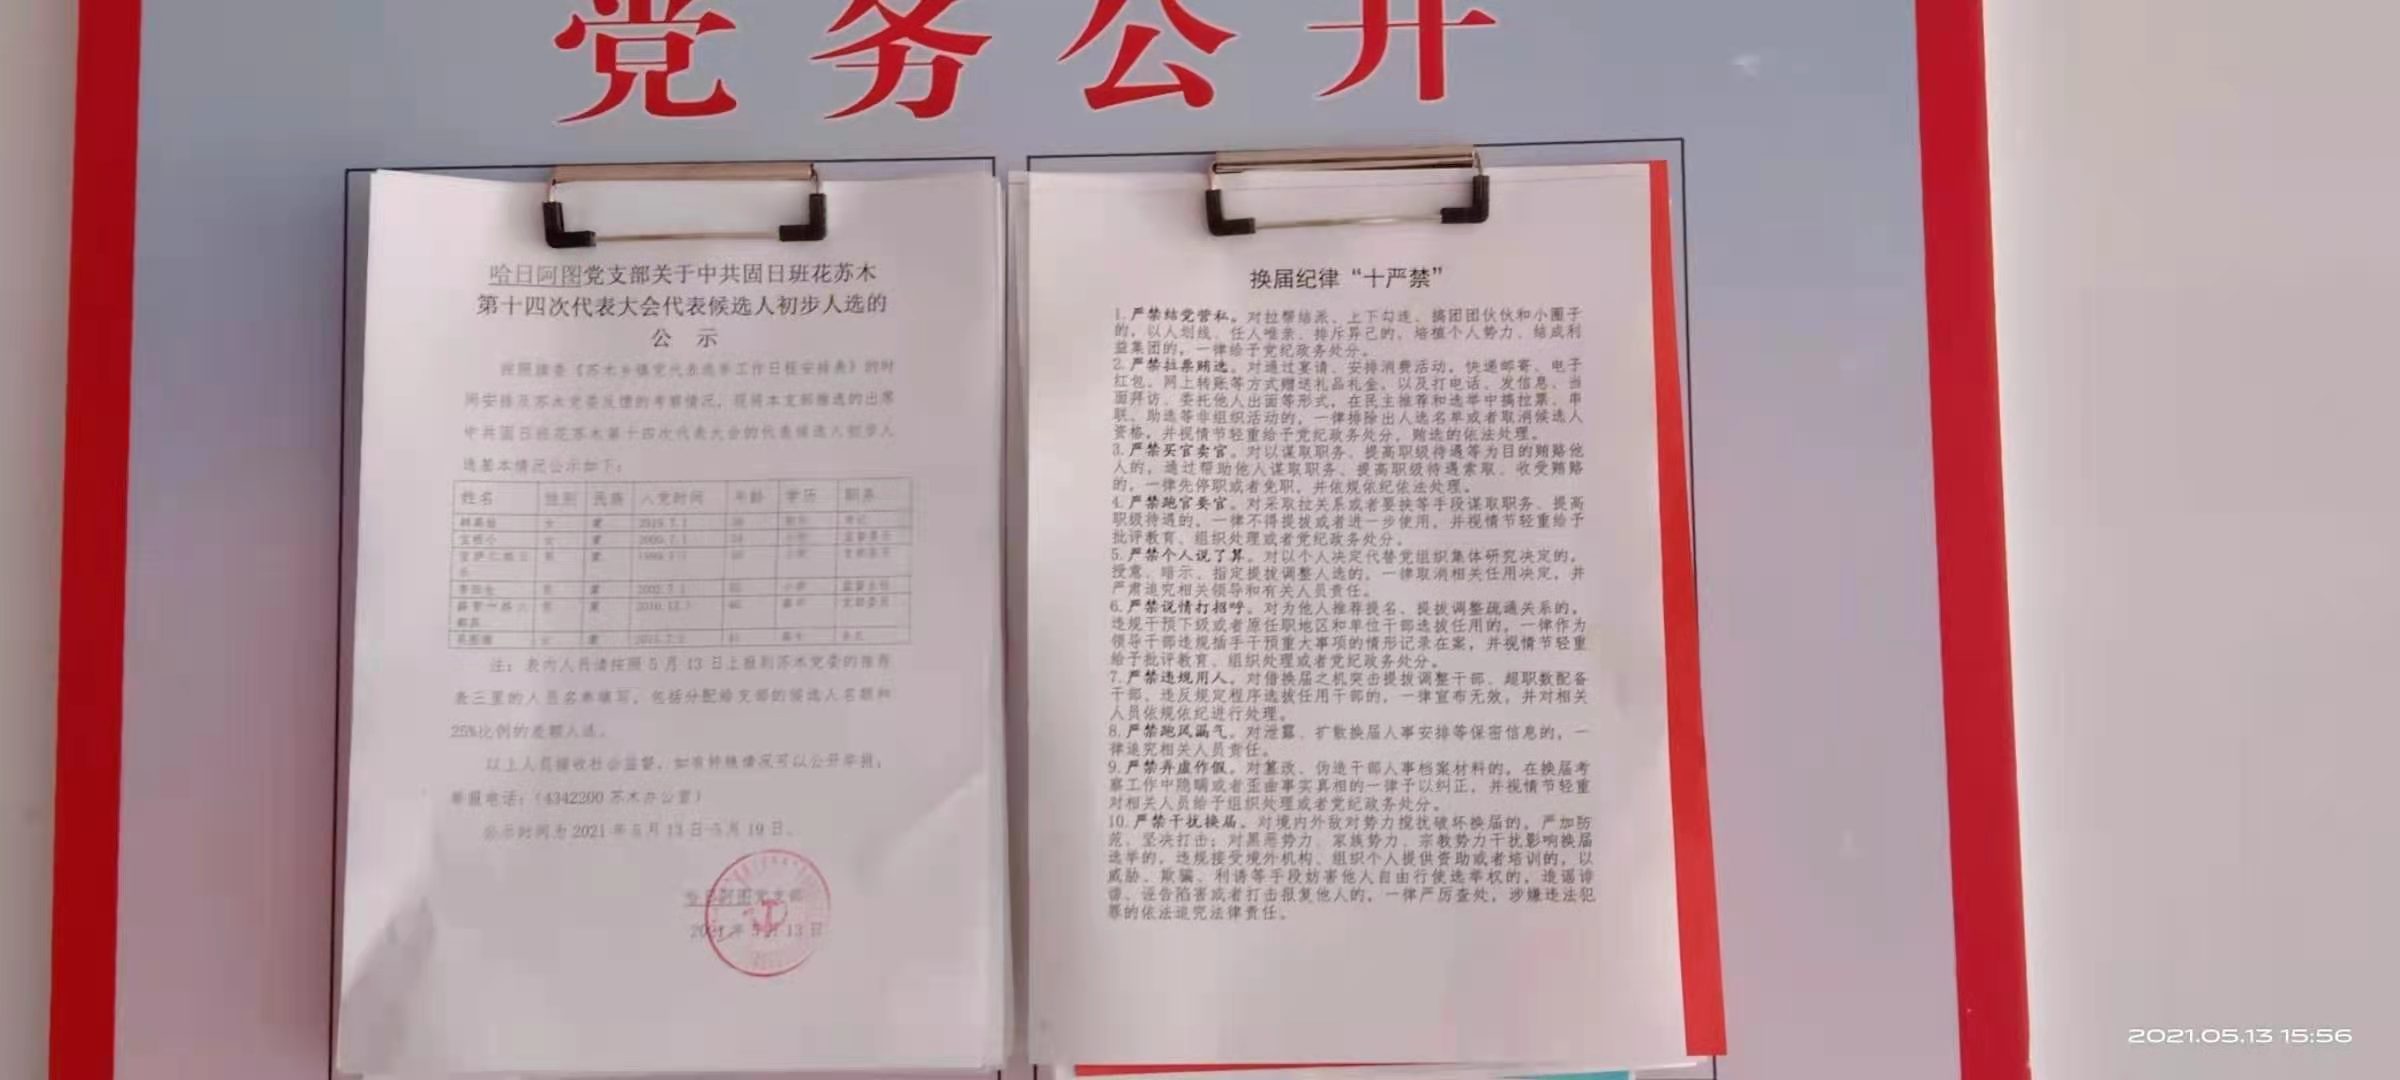 党务公开
哈日阿图党支部关于中共固日班花苏木
第十四次代表大会代表候选人初步人选的
公 示
按照旗委《苏木乡镇党代表选举工作日程安排表》的时
间安排及苏木党委反馈的考察情况，现将本支部推选的出席
中共固日班花苏木第十四次代表大会的代表候选人初步人
选基本情况公示如下：
姓名 性别 民族 入党时间 年龄 学历 职务
女 蒙 2015.7.1
女 蒙 2000.7.1
蒙
蒙 2002.7.1
蒙 2010.12.1
女 蒙
注：表内人员请按照5月13日上报到苏木党委的推荐
表三里的人员名单填写，包括分配给支部的候选人名额和
25%比例的差额人选。
以上人员接收社会监督，如有特殊情况可以公开举报，
举报电话：（4342200 苏木办公室）
公示时间为2021年5月13日-5月19日。
哈日阿图党支部
2021年5月13日
换届纪律“十严禁”
1.严禁结党营私。对拉帮结派、上下勾连、搞团团伙伙和小圈子
的，以人划线、任人唯亲、排斥异己的，培植个人势力、结成利
益集团的，一律给予党纪政务处分。
2.严禁拉票贿选。对通过宴请、安排消费活动，快递邮寄、电子
红包、网上转账等方式赠送礼品礼金，以及打电话、发信息、当
面拜访、委托他人出面等形式，在民主推荐和选举中搞拉票、串
联、助选等非组织活动的，一律排除出人选名单或者取消候选人
资格，并视情节轻重给予党纪政务处分，贿选的依法处理。
3.严禁买官卖官。对以谋取职务、提高职级待遇等为目的贿赂他
人的，通过帮助他人谋取职务、提高职级待遇索取、收受贿赂
的，一律先停职或者免职，并依规依纪依法处理。
4.严禁跑官要官。对采取拉关系或者要挟等手段谋取职务、提高
职级待遇的，一律不得提拔或者进一步使用，并视情节轻重给予
批评教育、组织处理或者党纪政务处分。
5.严禁个人说了算。对以个人决定代替党组织集体研究决定的，
授意、暗示、指定提拔调整人选的，一律取消相关任用决定，并
严肃追究相关领导和有关人员责任。
6.严禁说情打招呼。对为他人推荐提名、提拔调整疏通关系的，
违规干预下级或者原任职地区和单位干部选拔任用的，一律作为
领导干部违规插手干预重大事项的情形记录在案，并视情节轻重
给予批评教育、组织处理或者党纪政务处分。
7.严禁违规用人。对借换届之机突击提拔调整干部、超职数配备
干部、违反规定程序选拔任用干部的，一律宣布无效，并对相关
人员依规依纪进行处理。
8.严禁跑风漏气。对泄露、扩散换届人事安排等保密信息的，一
律追究相关人员责任。
9.严禁弄虚作假。对篡改、伪造干部人事档案材料的，在换届考
察工作中隐瞒或者歪曲事实真相的一律予以纠正，并视情节轻重
对相关人员给予组织处理或者党纪政务处分。
10.严禁干扰换届。对境内外敌对势力搅扰破坏换届的，严加防
范、坚决打击；对黑恶势力、家族势力、宗教势力干扰影响换届
选举的，违规接受境外机构、组织个人提供资助或者培训的，以
威胁、欺骗、利诱等手段妨害他人自由行使选举权的，造谣诽
谤、诬告陷害或者打击报复他人的，一律严厉查处，涉嫌违法犯
罪的依法追究法律责任。
2021.05.13 15:56